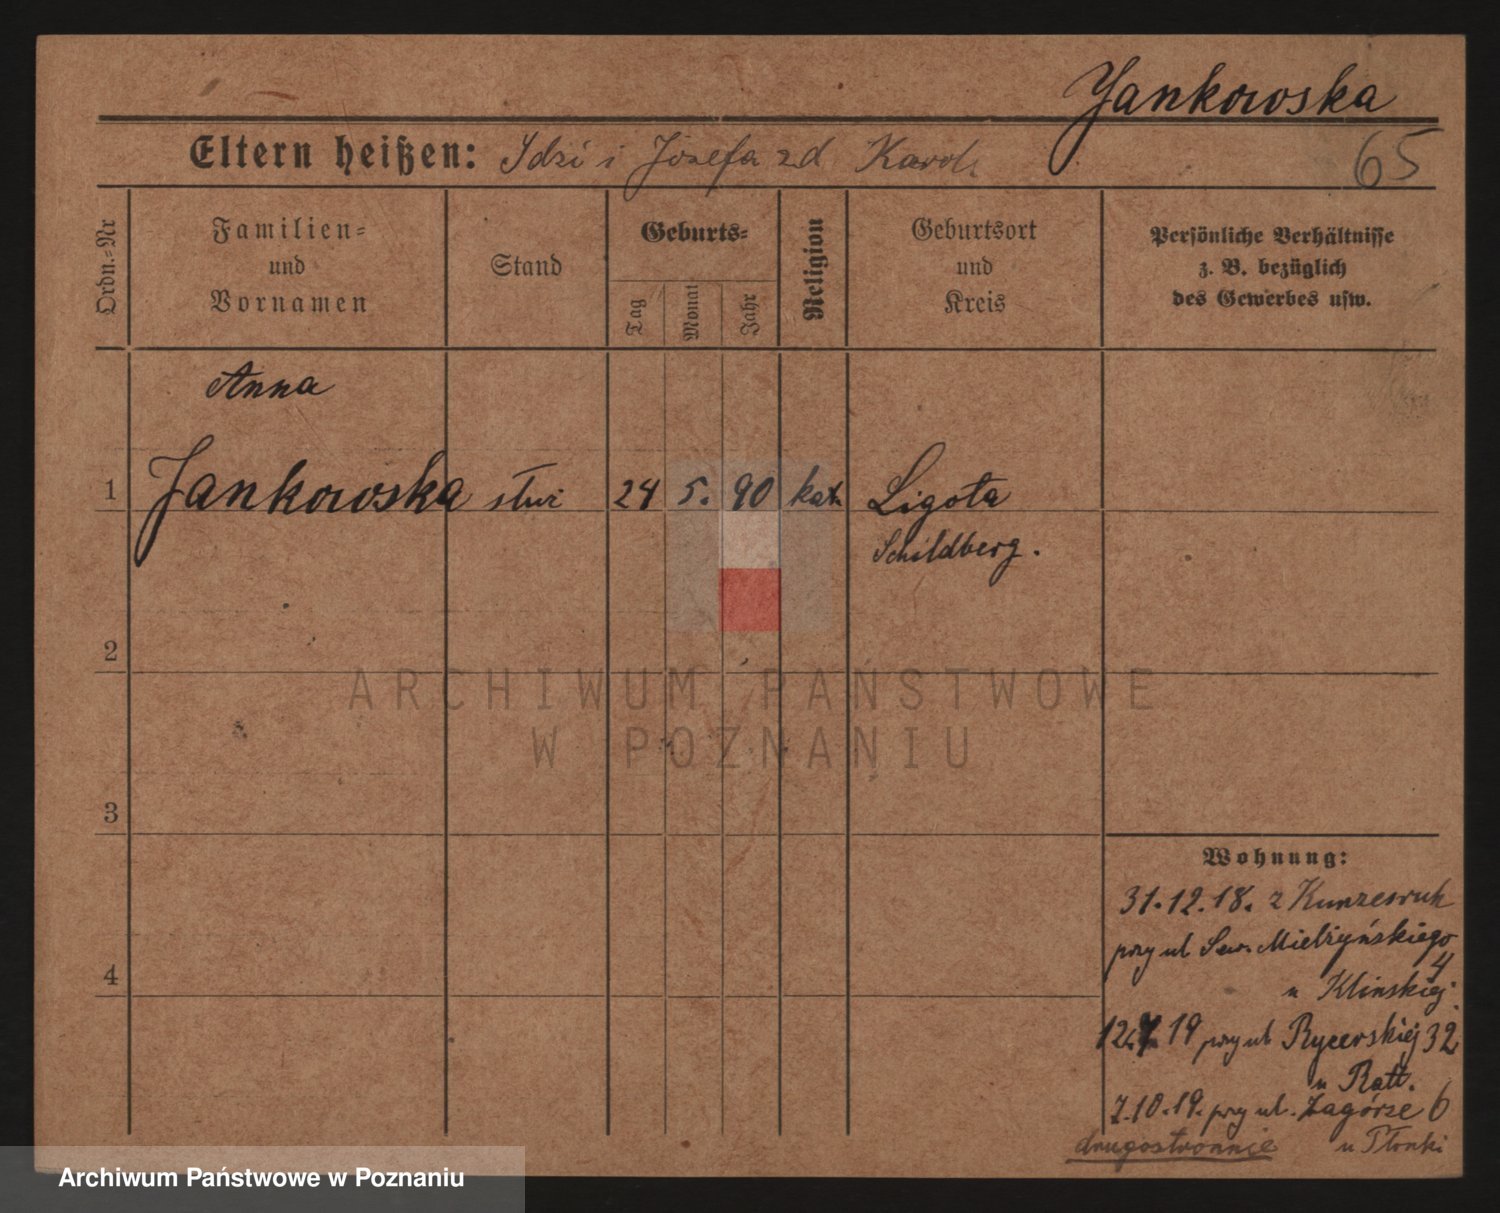 Jankowska
65
Eltern heißen: Idzi i Józefa zd Karol
Ordn.-Nr
Familien-
und
Vornamen
Stand
Geburts-
Tag
Monat
Jahr
Religion
Geburtsort
und
Kreis
Persönliche Verhältnisse
z. B. bezüglich
des Gewerbes usw.
Anna
1 Jankowska 24 5. 90 kat. Ligota
Schildberg.
2
ARCHIWUM PAŃSTWOWE
W POZNANIU
3
Wohnung:
31.12.18. z
przy ul Sew. Mielżyńskiego
4
4
u Klinskiej.
19 przy ul Rycerskiej 32
u Ratt.
7.10.19. przy ul. Zagórze 6
drugostronnie u Płonki
Archiwum Państwowe w Poznaniu